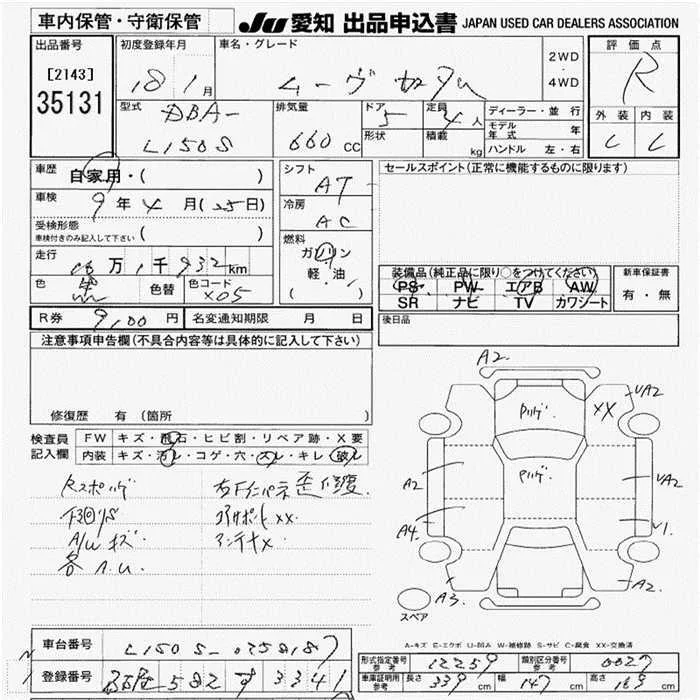 車内保管・守衛保管
JU 愛知 出品申込書 JAPAN USED CAR DEALERS ASSOCIATION
出品番号
[2143]
35131
初度登録年月
18 1月
車名・グレード
ムーヴ カスタム
2WD
・
4WD
評価点
R
型式 DBA-
L150S
排気量
660 cc
ドア 5
形状
定員 4 人
積載 kg
ディーラー・並行
モデル年式 年
ハンドル 左・右
外装 内装
C C
車歴 自家用・( )
車検 9年 4月(25日)
受検形態
車検付きのみ記入して下さい ( )
走行 16万1千932km
色 黒 色替 色コード X05
シフト AT
冷房 AC
燃料
ガソリン
軽・油
( )
セールスポイント(正常に機能するものに限ります)
装備品(純正品に限り○をつけてください)
PS PW エアB AW
SR ナビ TV カワシート
新車保証書
有・無
R券 9,100 円 名変通知期限 月 日
後日品
注意事項申告欄(不具合内容等は具体的に記入して下さい)
修復歴 有(箇所 )
検査員
記入欄
FW キズ・飛石・ヒビ割・リペア跡・X要
内装 キズ・汚レ・コゲ・穴・スレ・キレ・破レ
下回りS
A/Wキズ
各A.U.
コアサポートXX
アンテナX
A2
UA2
XX
A2
UA2
A4
U1
A3
A2
スペア
A-キズ E-エクボ U-凹み W-補修跡 S-サビ C-腐食 XX-交換済
車台番号 L150S-0258187
登録番号 582 す 3341
形式指定番号 参考 12259 類別区分番号 参考 0027
車庫証明用 参考 長さ 339 cm 幅 147 cm 高さ 163 cm